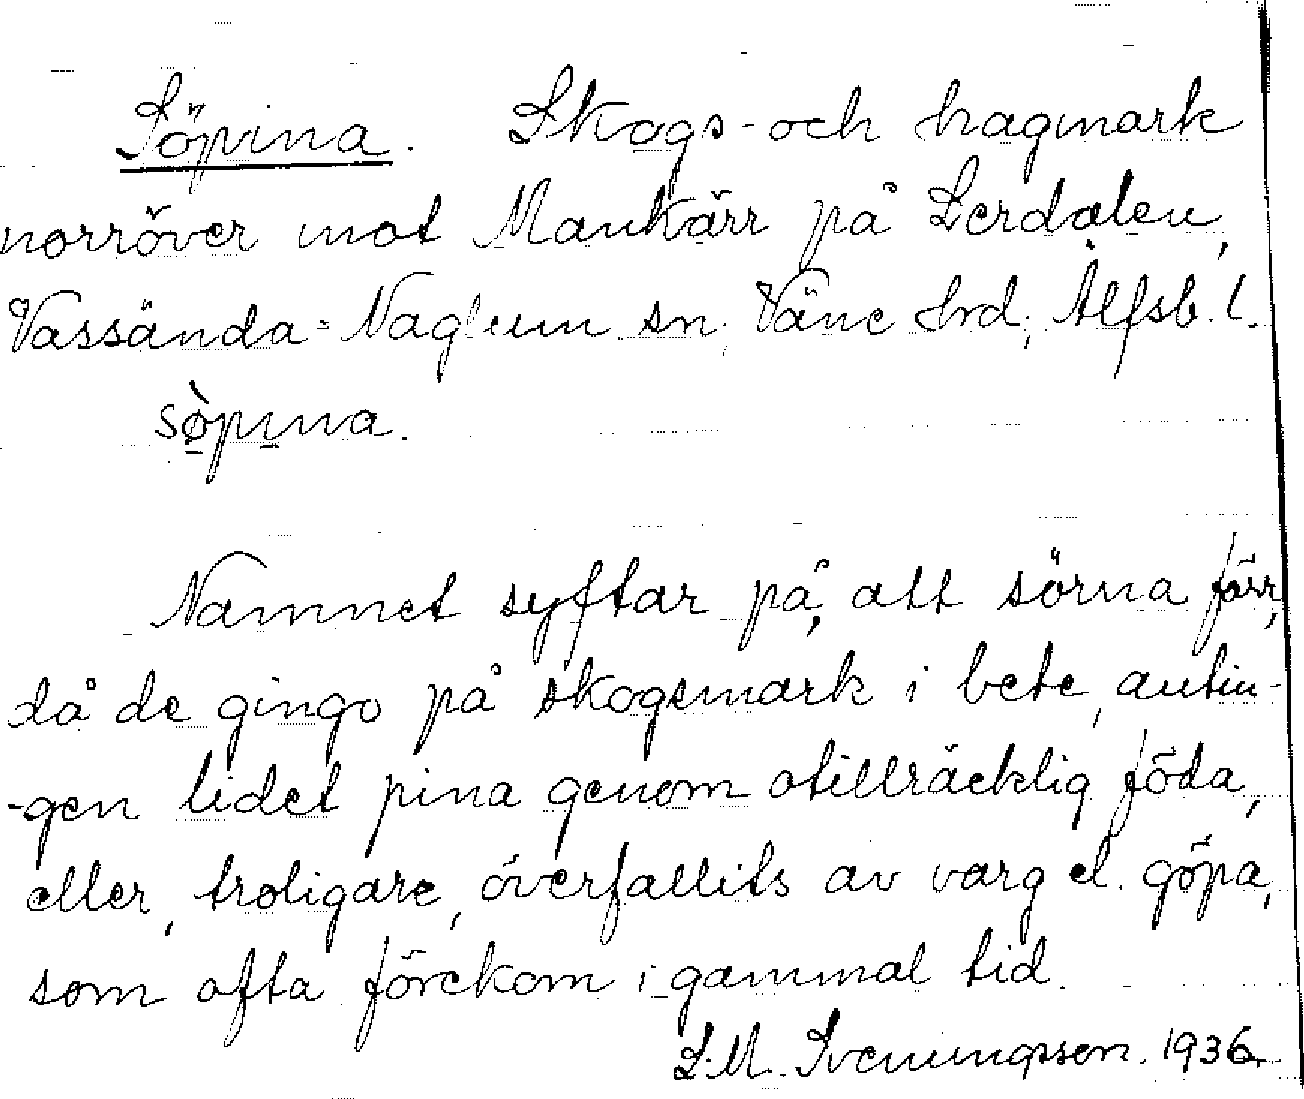 Söpina. Skogs- och hagmark
norröver mot Mankärr på Lerdalen,
Vassända-Naglum sn, Väne hrd, Älfsb. l.
sö̀pına.
Namnet syftar på, att sörna förr,
då de gingo på skogsmark i bete, antin-
-gen lidet pina genom otillräcklig föda,
eller, troligare, överfallits av varg el. göpa,
som ofta förekom i gammal tid.
S. M. Svenungsson. 1936.